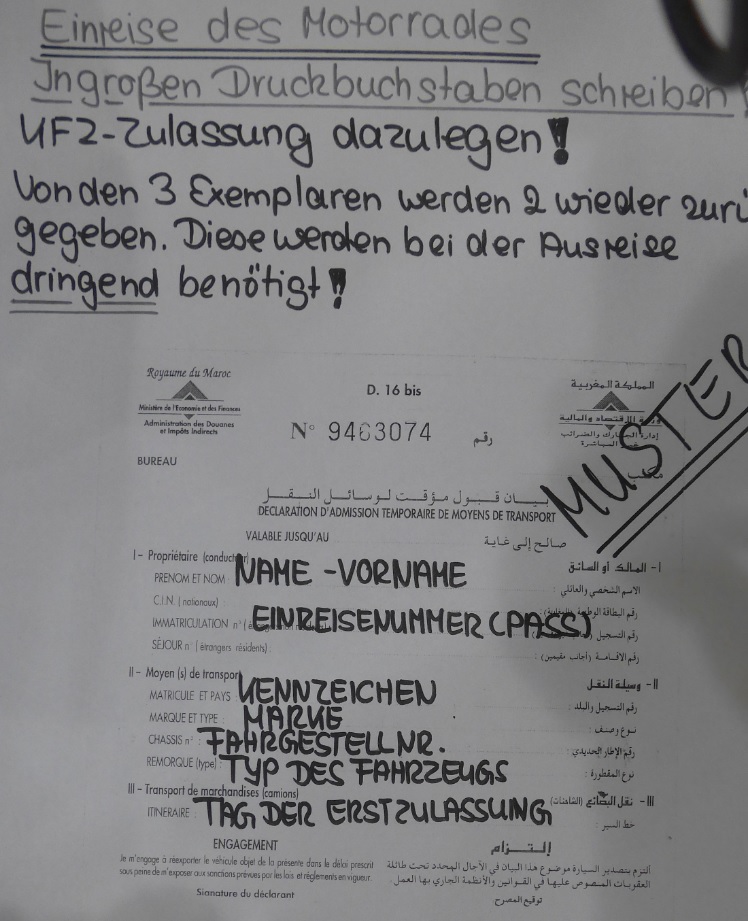 Einreise des Motorrades
In großen Druckbuchstaben schreiben!
KFZ-Zulassung dazulegen!
Von den 3 Exemplaren werden 2 wieder zurü
gegeben. Diese werden bei der Ausreise
dringend benötigt!
Royaume du Maroc
Ministère de l'Economie et des Finances
Administration des Douanes
et Impôts Indirects
BUREAU
D. 16 bis
N° 9463074 رقم
المملكة المغربية
وزارة الاقتصاد والمالية
إدارة الجمارك والضرائب
غير المباشرة
مكتب
MUSTER
بيـان قبـول مـؤقـت لـوسـائـل النـقـل
DECLARATION D'ADMISSION TEMPORAIRE DE MOYENS DE TRANSPORT
VALABLE JUSQU'AU صالح إلى غاية
I - Propriétaire (conducteur) I- المالك أو السائق
PRENOM ET NOM : NAME - VORNAME الاسم الشخصي والعائلي :
C.I.N. (nationaux) : رقم البطاقة الوطنية
IMMATRICULATION n° EINREISENUMMER (PASS) رقم التسجيل
SÉJOUR n° (étrangers résidents) : رقم الاقامة (أجانب مقيمين) :
II - Moyen (s) de transport II- وسيلة النقل
MATRICULE ET PAYS : KENNZEICHEN رقم التسجيل والبلد :
MARQUE ET TYPE : MARKE نوع وصنف :
CHASSIS n° : FAHRGESTELLNR. رقم الإطار الحديدي :
REMORQUE (type) : TYP DES FAHRZEUGS نوع المقطورة :
III - Transport de marchandises (camions) III- نقل البضائع (الشاحنات)
ITINERAIRE : TAG DER ERSTZULASSUNG خط السير :
ENGAGEMENT التـــزام
Je m'engage à réexporter le véhicule objet de la présente dans le délai prescrit
sous peine de m'exposer aux sanctions prévues par les lois et règlements en vigueur.
التزم بتصدير السيارة موضوع هذا البيان في الآجال المحدد تحت طائلة
العقوبات المنصوص عليها في القوانين والأنظمة الجاري بها العمل.
Signature du déclarant توقيع المصرح